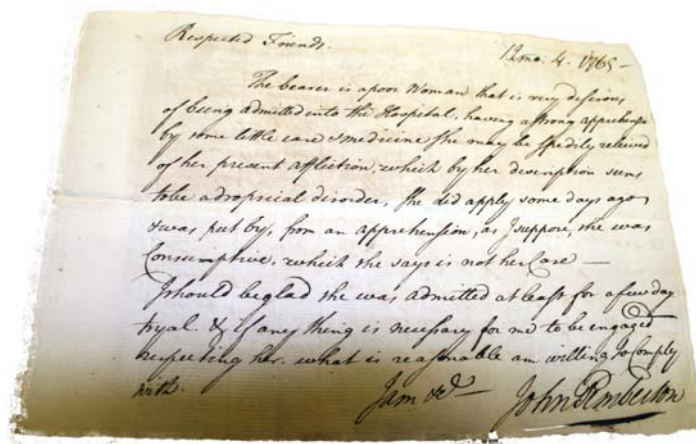 Respected Friends.
12mo. 4. 1765 -
The bearer is a poor Woman that is very desirous
of being admitted into the Hospital, having a strong apprehension
by some little care & medicine She may be Speedily releived
of her present affliction, which by her description seems
to be a dropsical disorder, She did apply some days ago
& was put by, from an apprehension, as I suppose, she was
Consumptive, which she says is not her Case —
I should be glad she was admitted at least for a few day
tryal. & if any thing is necessary for me to be engaged
respecting her. what is reasonable am willing to Comply
with.
I am &c —
John Pemberton